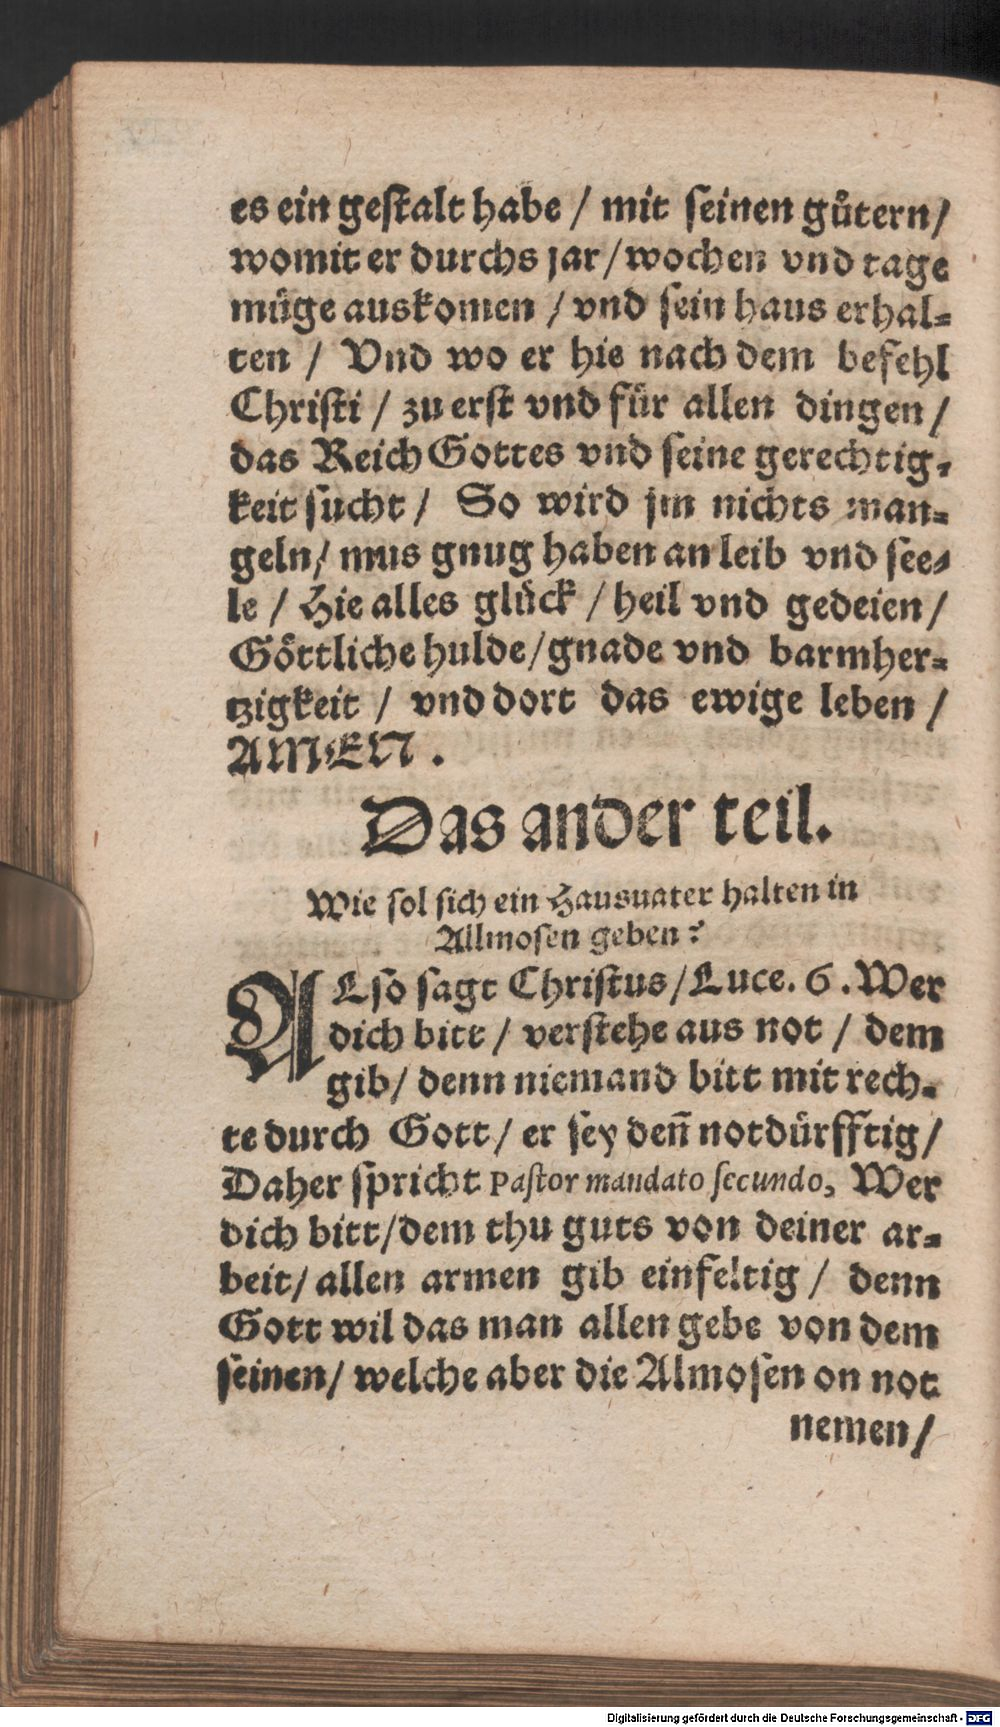 es ein geſtalt habe / mit ſeinen guͤtern /
womit er durchs jar / wochen vnd tage
muͤge auskomen / vnd ſein haus erhal-
ten / Vnd wo er hie nach dem befehl
Chriſti / zu erſt vnd fuͤr allen dingen /
das Reich Gottes vnd ſeine gerechtig-
keit ſucht / So wird jm nichts man-
geln / mus gnug haben an leib vnd ſee-
le / Hie alles gluͤck / heil vnd gedeien /
Goͤttliche hulde / gnade vnd barmher-
tzigkeit / vnd dort das ewige leben /
AMEN .
Das ander teil.
Wie ſol ſich ein Hausuater halten in
Allmoſen geben ?
ALſo ſagt Chriſtus / Luce. 6 . Wer
dich bitt / verſtehe aus not / dem
gib / denn niemand bitt mit rech-
te durch Gott / er ſey den̄ notduͤrfftig /
Daher ſpricht Paſtor mandato ſecundo, Wer
dich bitt / dem thu guts von deiner ar-
beit / allen armen gib einfeltig / denn
Gott wil das man allen gebe von dem
ſeinen / welche aber die Almoſen on not
nemen /
Digitalisierung gefördert durch die Deutsche Forschungsgemeinschaft - DFG